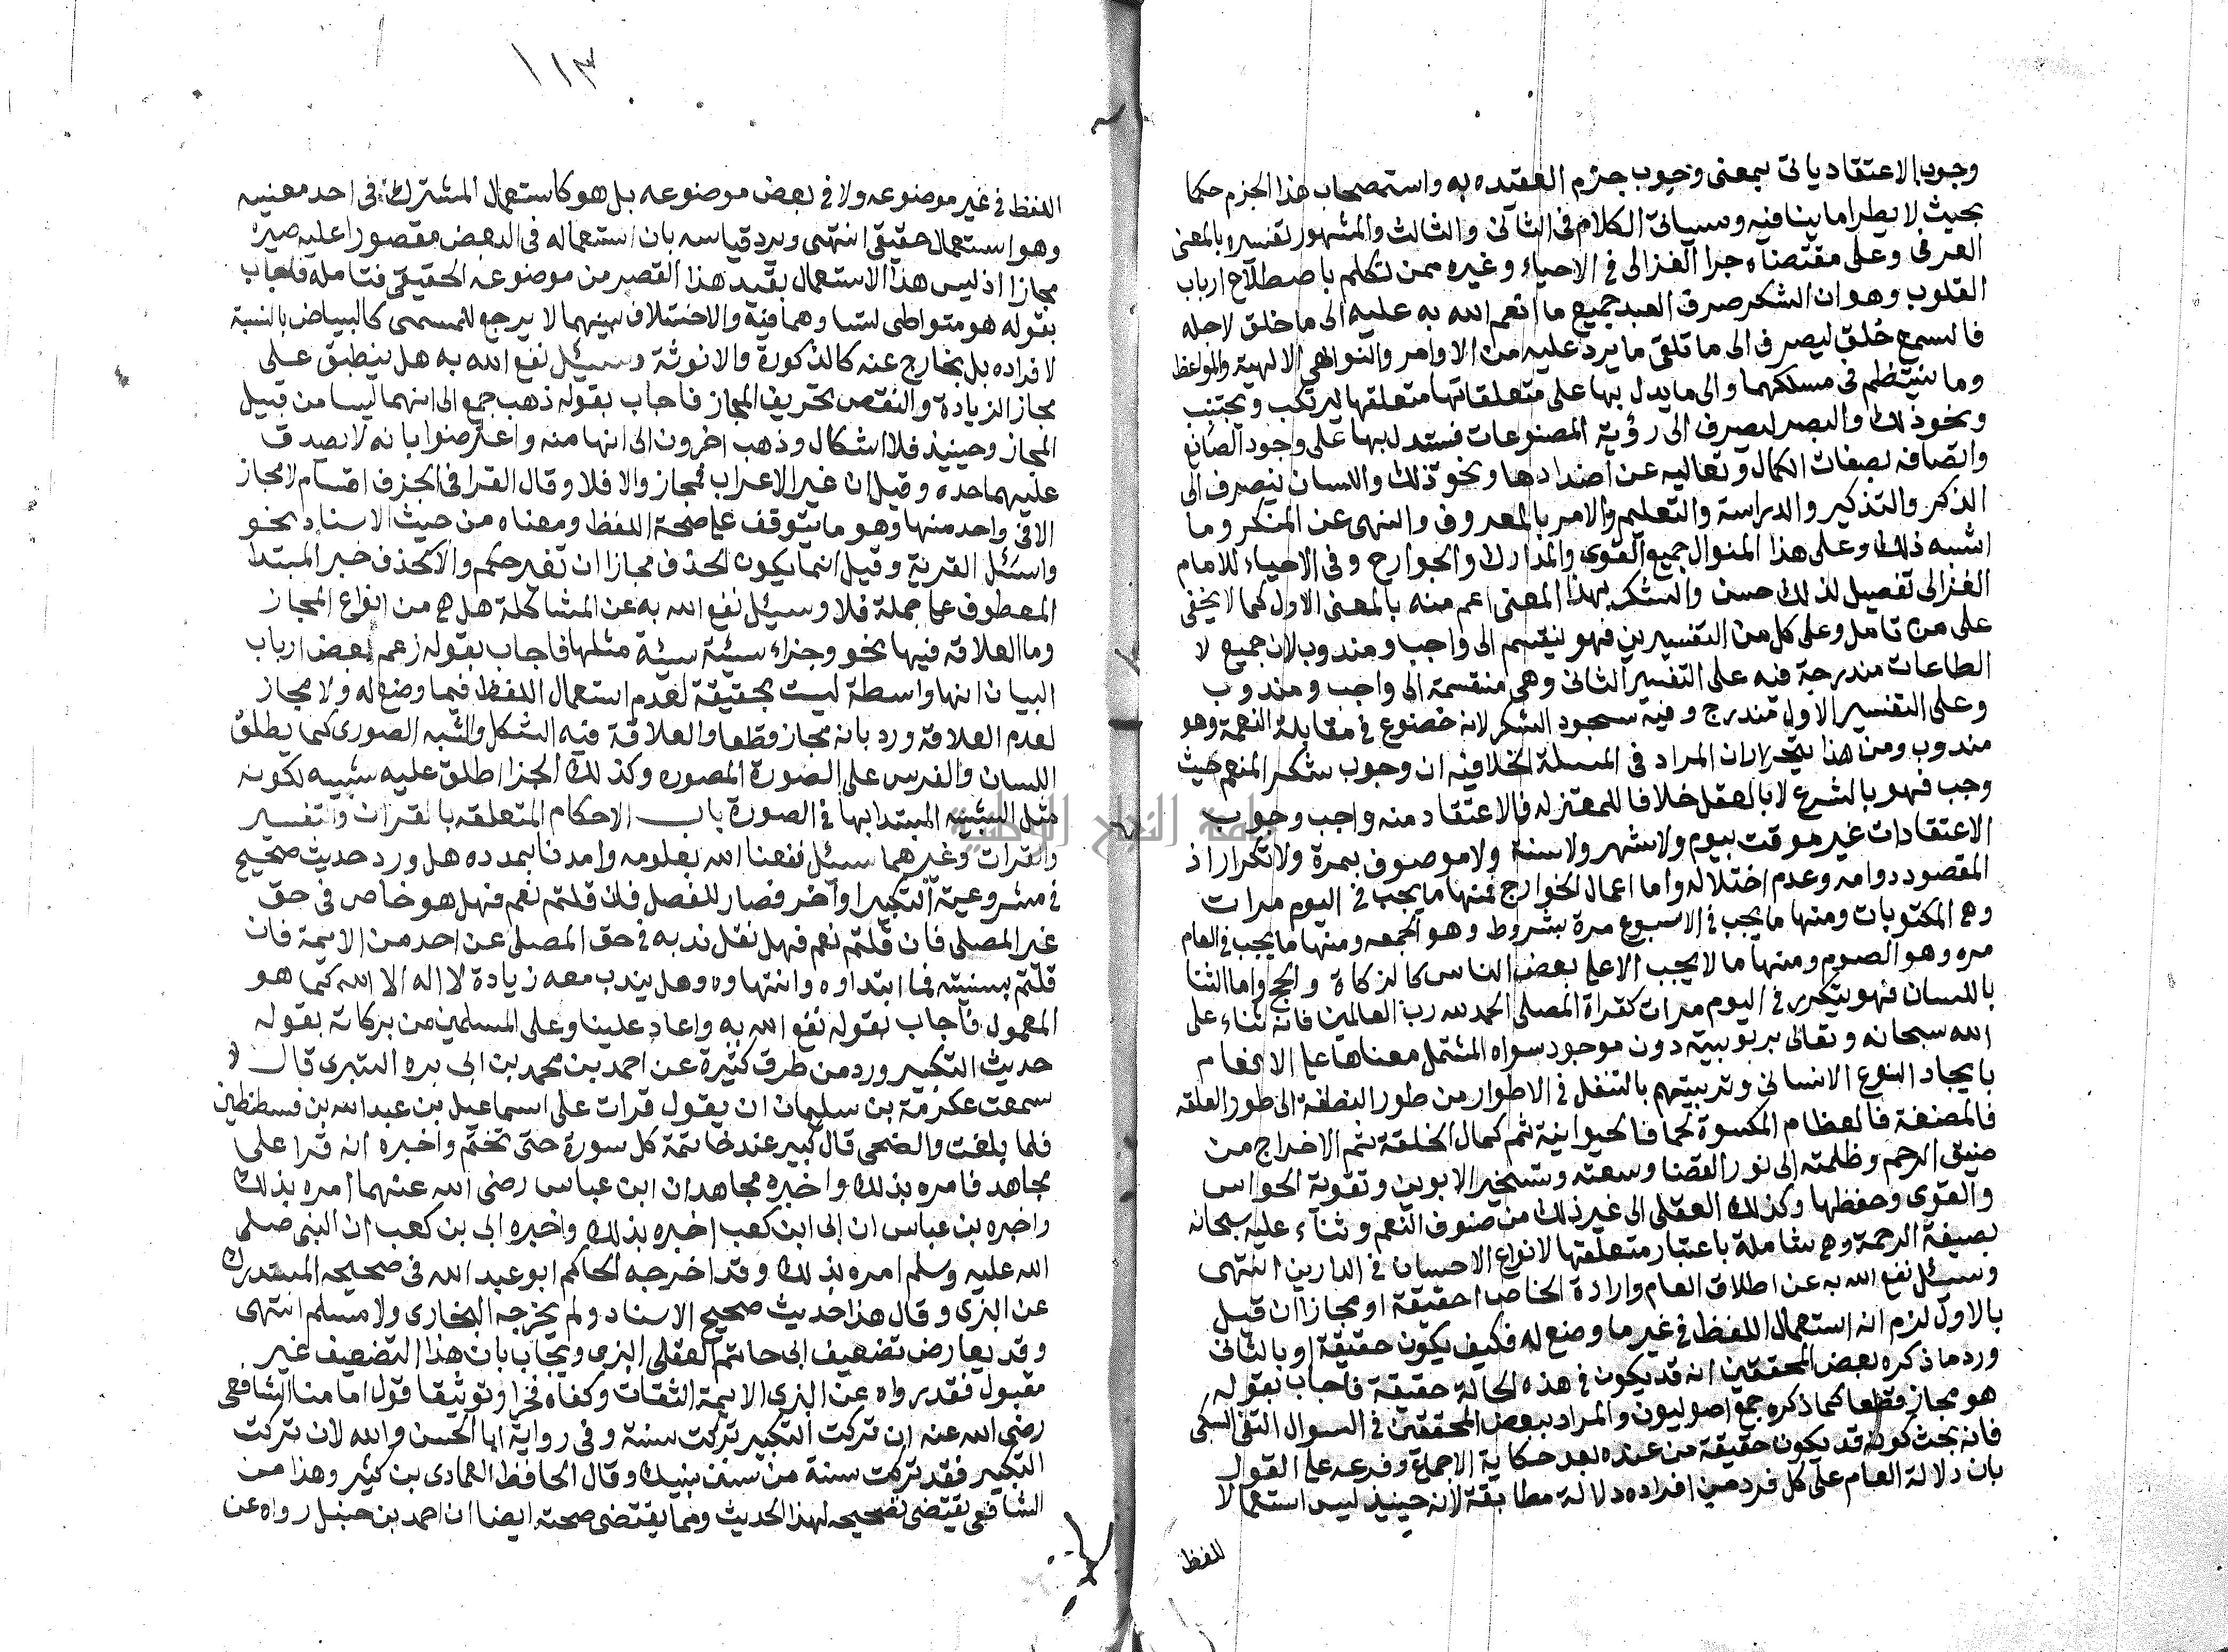 وجوب الاعتقاد ياتى بمعنى وجوب جزم العقيده به واستصحاب هذا الجزم حكما
بحيث لا يطرا ما ينافيه وسياتى الكلام فى الثانى والثالث والمشهور تفسيره بالمعنى
العرفى وعلى مقتضاه جرا الغزالى فى الاحياء وغيره ممن تكلم باصطلاح ارباب
القلوب وهو ان الشكر صرف العبد جميع ما انعم الله به عليه الى ما خلق لاجله
فالسمع خلق ليصرف الى ما تلقى ما يرد عليه من الاوامر والنواهى الالهية والمواعظ
وما ينتظم فى مسلكهما والى ما يدل بها على متعلقاتها متعلقها ليرتكب ويجتنب
ونحو ذلك والبصر ليصرف الى رؤية المصنوعات فستدل بها على وجود الصانع
واتصافه بصفات الكمال وتعاليه عن اضدادها ونحو ذلك واللسان ينصرف الى
الذكر والتذكير والدراسة والتعليم والامر بالمعروف والنهى عن المنكر وما
اشبه ذلك وعلى هذا المنوال جميع القوى والمدارك والجوارح وفى الاحياء للامام
الغزالى تفصيل لذلك حسن والشكر بهذا المعنى اعم منه بالمعنى الاول كما لا يخفى
على من تامل وعلى كل من التفسيرين فهو ينقسم الى واجب ومندوب لان جميع لا
الطاعات مندرجة فيه على التفسير الثانى وهى منقسمة الى واجب ومندوب
وعلى التفسير الاول تندرج وفيه سجود الشكر لانه خضوع فى مقابلة النعمة وهو
مندوب ومن هذا يتحرر ان المراد فى المسلة الخلافيه ان وجوب شكر المنعم حيث
وجب فهو بالشرع لا بالعقل خلافا للمعتزله فالاعتقاد منه واجب وجوب
الاعتقادات غير موقت بيوم ولا شهر ولا سنة ولا موصوف بمرة ولا تكرار اذ
المقصود دوامه وعدم اختلاله واما اعمال الجوارح فمنها ما يجب فى اليوم مرات
وهى المكتوبات ومنها ما يجب فى الاسبوع مرة بشروط وهو الجمعه ومنها ما يجب فى العام
مره وهو الصوم ومنها ما لا يجب الا على بعض الناس كالزكاة والحج واما الثنا
باللسان فهو يتكرر فى اليوم مرات كقراة المصلى الحمد لله رب العالمين فانه ثناء على
الله سبحانه وتعالى بربوبيته دون موجود سواه المشتمل معناها على الانعام
بايجاد النوع الانسانى وتربيتهم بالتنقل فى الاطوار من طور النطفة الى طور العلقه
فالمضغة فالعظام المكسوة لحما فالحيوانية ثم كمال الخلقة ثم الاخراج من
ضيق الرحم وظلمته الى نور الفضا وسعته وتسخير الابوين وتقوية الحواس
والقوى وحفظها وكذلك العقلى الى غير ذلك من صنوف النعم وثناء عليه سبحانه
بصيغة الرحمة وهى شاملة باعتبار متعلقها لانواع الاحسان فى الدارين انتهى
وسئل نفع الله به عن اطلاق العام وارادة الخاص احقيقة او مجازا ان قيل
بالاول لزم انه استعمال اللفظ فى غير ما وضع له فكيف يكون حقيقة او بالثانى
ورد ما ذكره بعض المحققين انه قد يكون فى هذه الحالة حقيقة فاجاب بقوله
هو مجاز قطعا كما ذكره جمع اصوليون والمراد ببعض المحققين فى السوال التقى السبكى
فانه بحث كونه قد يكون حقيقة من عنده بعد حكاية الاجماع وفرعه على القول
بان دلالة العام على كل فرد من افراده دلالة مطابقة لانه حينيذ ليس استعمالا
للفظ
١١٣
اللفظ فى غير موضوعه ولا فى بعض موضوعه بل هو كاستعمال المشترك فى احد معنييه
وهو استعمال حقيقى انتهى ويرد قياسه بان استعماله فى البعض مقصورا عليه صيره
مجازا اذ ليس هذا الاستعمال بقيد هذا القصر من موضوعه الحقيقى فتامله فاجاب
بقوله هو متواطى لتساوهما فيه والاختلاف بينهما لا يرجع للمسمى كالبياض بالنسبة
لافراده بل بخارج عنه كالذكورة والانوثة وسئل نفع الله به هل ينطبق على
مجاز الزيادة والنقص تحريف المجاز فاجاب بقوله ذهب جمع الى انهما ليسا من قبيل
المجاز وحينيذ فلا اشكال وذهب اخرون الى انها منه واعترضوا بانه لا يصدق
عليهما حده وقيل ان غير الاعراب فمجاز والا فلا وقال القرافى الحذف اقسام لا مجاز
الا فى واحد منها وهو ما يتوقف عليه صحة اللفظ ومعناه من حيث الاسناد نحو
واسئل القرية وقيل انما يكون الحذف مجازا ان تغير حكم والا كحذف خبر المبتدا
المعطوف على جملة فلا وسئل نفع الله به عن المشاكلة هل هى من انواع المجاز
وما العلاقة فيها نحو وجزاء سيئة سيئة مثلها فاجاب بقوله زعم بعض ارباب
البيان انها واسطة ليست بحقيقة لعدم استعمال اللفظ فيما وضع له ولا مجاز
لعدم العلاقة ورد بانه مجاز قطعا والعلاقة فيه الشكل والشبه الصورى كما يطلق
اللسان والفرس على الصورة المصوره وكذلك الجزا اطلق عليه سيئه لكونه
مثل السيئه المبتدا بها فى الصورة باب الاحكام المتعلقه بالقران والتفسير
والقرات وغيرهما سئل نفعنا الله بعلومه وامدنا بمدده هل ورد حديث صحيح
فى مشروعية التكبير اواخر قصار المفصل فان قلتم نعم فهل هو خاص فى حق
غير المصلى فان قلتم نعم فهل نقل ندبه فى حق المصلى عن احد من الايمة فان
قلتم بسنيته فما ابتداوه وانتهاوه وهل يندب معه زيادة لا اله الا الله كما هو
المعمول فاجاب بقوله نفع الله به واعاد علينا وعلى المسلمين من بركاته بقوله
حديث التكبير ورد من طرق كثيرة عن احمد بن محمد بن ابى بزه البزى قال
سمعت عكرمة بن سليمان ان يقول قرات على اسماعيل بن عبد الله بن قسطنطين
فلما بلغت والضحى قال كبير عند خاتمة كل سورة حتى تختم واخبره انه قرا على
مجاهد فامره بذلك واخبره مجاهد ان ابن عباس رضى الله عنهما امره بذلك
واخبره بن عباس ان ابى ابن كعب اخبره بذلك واخبره ابى بن كعب ان النبى صلى
الله عليه وسلم امره بذلك وقد اخرجه الحاكم ابو عبد الله فى صحيحه المستدرك
عن البزى وقال هذا حديث صحيح الاسناد ولم يخرجه البخارى ولا مسلم انتهى
وقد يعارض تضعيف ابى حاتم العقلى البزى ويجاب بان هذا التضعيف غير
مقبول فقد رواه عن البزى الايمة الثقات وكفاه فخرا وتوثيقا قول امامنا الشافعى
رضى الله عنه ان تركت التكبير تركت سنة وفى رواية ابا الحسن والله لان تركت
التكبير فقد تركت سنة من سنن نبيك وقال الحافظ العمادى بن كثير وهذا من
الشافعى يقتضى تصحيحه لهذا الحديث ومما يقتضى صحته ايضا ان احمد بن حنبل رواه عن
جامعة النجاح الوطنية